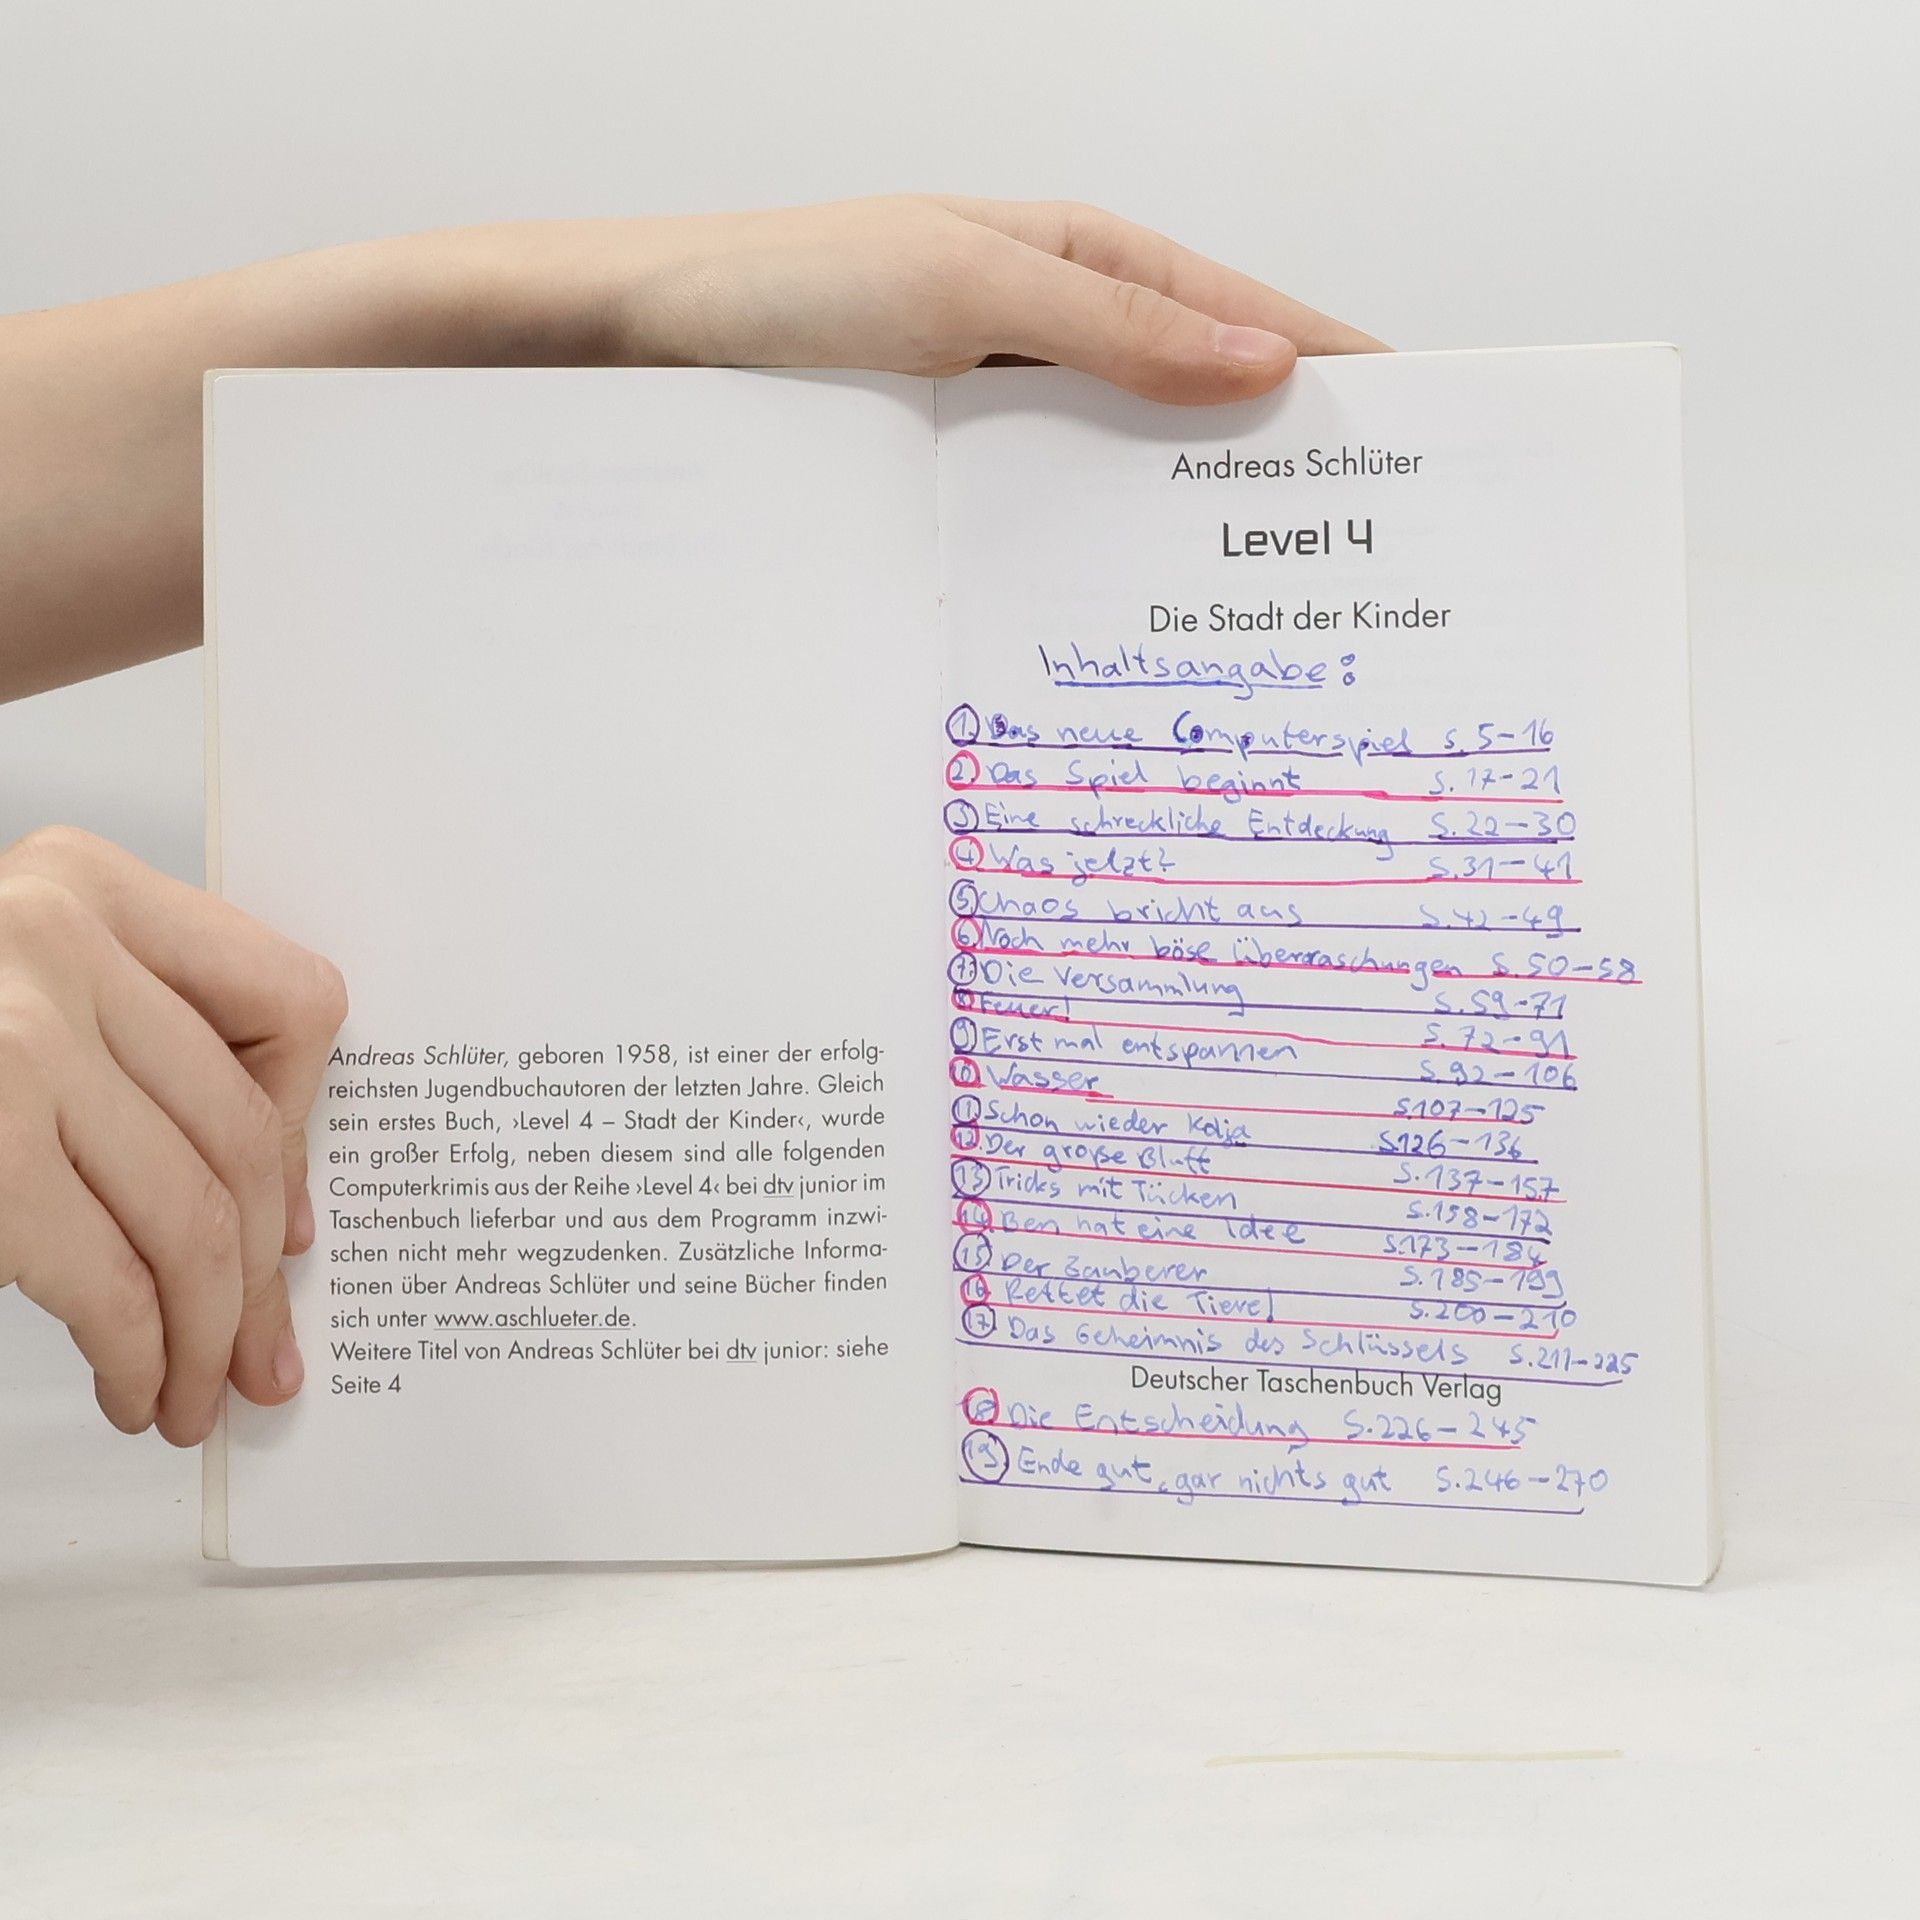 Andreas Schlüter, geboren 1958, ist einer der erfolg-
reichsten Jugendbuchautoren der letzten Jahre. Gleich
sein erstes Buch, ›Level 4 – Stadt der Kinder‹, wurde
ein großer Erfolg, neben diesem sind alle folgenden
Computerkrimis aus der Reihe ›Level 4‹ bei dtv junior im
Taschenbuch lieferbar und aus dem Programm inzwi-
schen nicht mehr wegzudenken. Zusätzliche Informa-
tionen über Andreas Schlüter und seine Bücher finden
sich unter www.aschlueter.de.
Weitere Titel von Andreas Schlüter bei dtv junior: siehe
Seite 4
Andreas Schlüter
Level 4
Die Stadt der Kinder
Inhaltsangabe:
1. Das neue Computerspiel S. 5–16
2. Das Spiel beginnt S. 17–21
3. Eine schreckliche Entdeckung S. 22–30
4. Was jetzt? S. 31–41
5. Chaos bricht aus S. 42–49
6. Noch mehr böse Überraschungen S. 50–58
7. Die Versammlung S. 59–71
8. Feuer! S. 72–91
9. Erst mal entspannen S. 92–106
10. Wasser S. 107–125
11. Schon wieder Kolja S. 126–136
12. Der große Bluff S. 137–157
13. Tricks mit Tücken S. 158–172
14. Ben hat eine Idee S. 173–184
15. Der Zauberer S. 185–199
16. Rettet die Tiere! S. 200–210
17. Das Geheimnis des Schlüssels S. 211–225
Deutscher Taschenbuch Verlag
18. Die Entscheidung S. 226–245
19. Ende gut, gar nichts gut S. 246–270